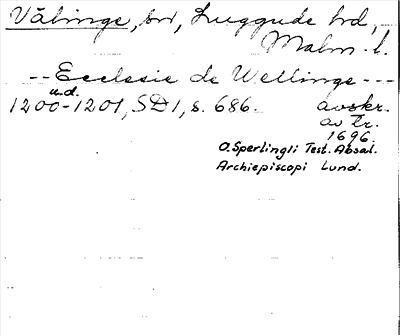 Välinge, sn, Luggude hd,
Malm. l.
-- Ecclesie de Wellinge ---
u.d.
1200-1201, SD1, s. 686. avskr.
av tr.
1696.
O. Sperlingli Test. Absal.
Archiepiscopi Lund.